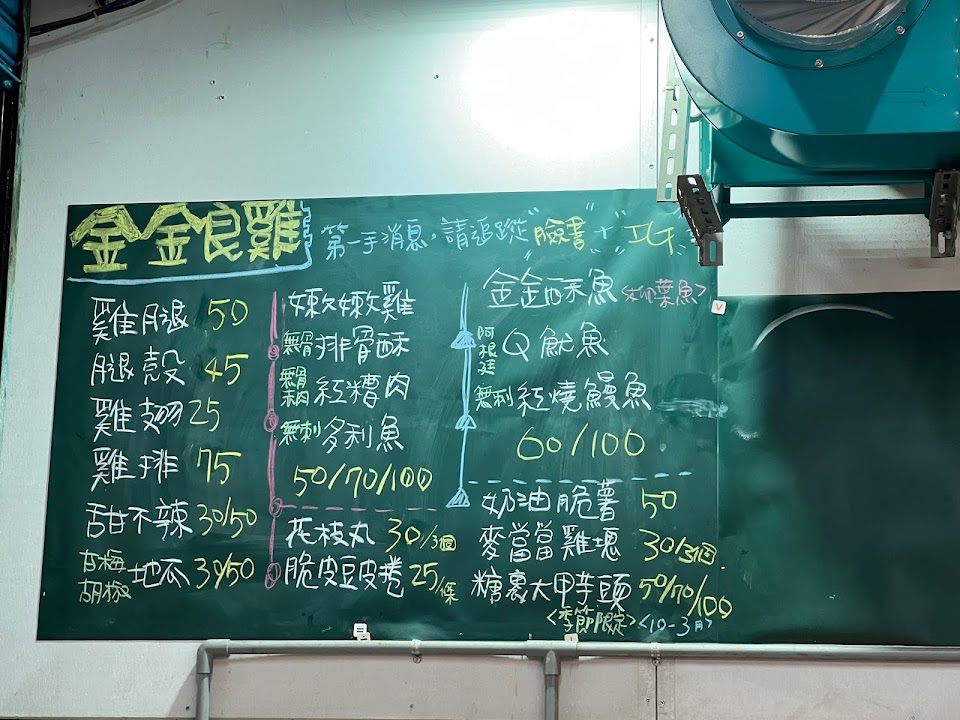 金金良雞 第一手消息，請追蹤"臉書"+"IG"
雞腿 50
腿殼 45
雞翅 25
雞排 75
甜不辣 30/50
甘梅 胡椒 地瓜 30/50
嫩嫩雞
無骨 排骨酥
無骨 本肉 紅糟肉
無刺 多利魚
50/70/100
花枝丸 30/3個
脆皮豆皮捲 25/條
金金酥魚<柳葉魚>
阿根廷 Q魷魚
無刺 紅燒鰻魚
60/100
奶油脆薯 50
麥當當雞塊 30/5個
糖裹大甲芋頭 50/70/100
<季節限定> <10-3月>